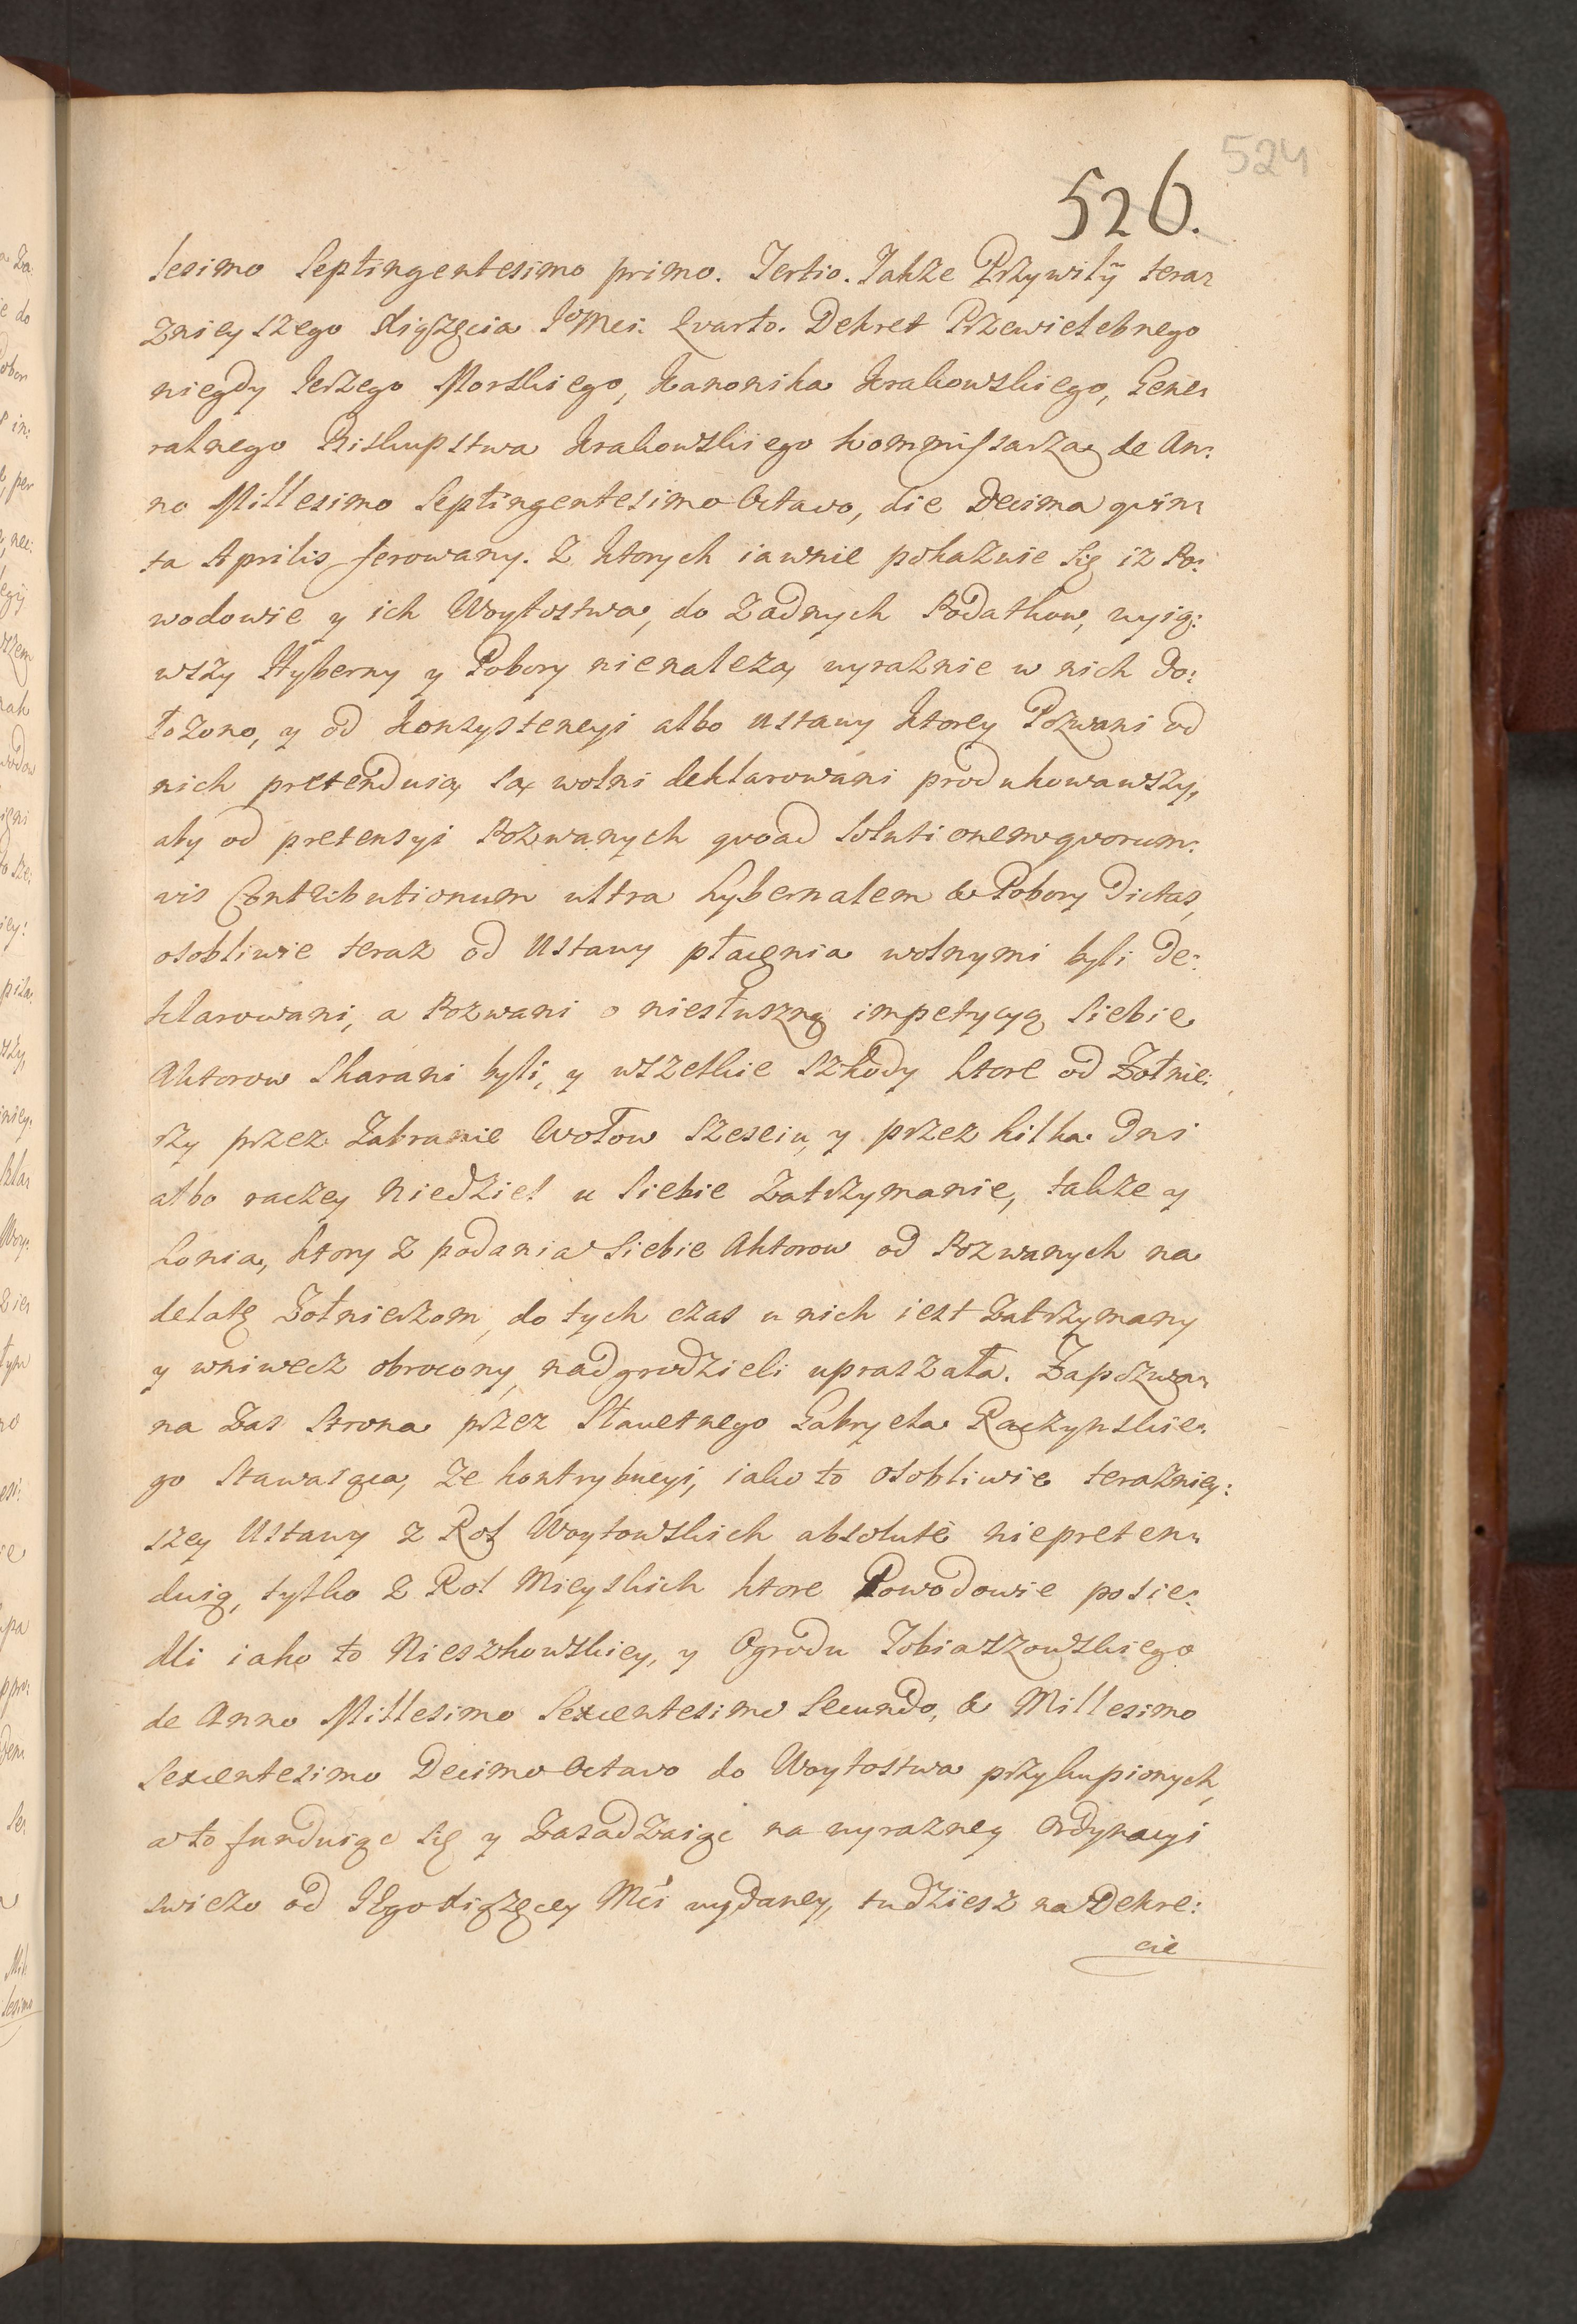 524
526.
lesimo Septingentesimo primo. Tertio. Takze Przywiłÿ teraz
znieyszego Xiążęcia JoMci. Qvarto. Dekret Przewielebnego
niegdy Jerzego Morskiego, Kanonika Krakowskiego, Gene:
ralnego Biskupstwa Krakowskiego Kommissarza, de An:
no Millesimo Septingentesimo Octavo, die Decima qvin:
ta Aprilis ferowany. Z ktorych iawnie pokazuie się iz Po:
wodowie y ich Woytostwa, do Zadnych Podatkow, wyią:
wszy Hyberny y Pobory nienalezą, wyraznie w nich do:
łozono, y od Konsystencyi albo Ustawy ktorey Pozwani od
nich pretenduią, są wolni deklarowani produkowawszy,
aby od pretensyi Pozwanych qvoad Solutionem qvorum:
vis Contributionum ultra hybernalem & Pobory dictas,
osobliwie teraz od Ustawy płacenia wolnymi byli de:
klarowani, a Pozwani o niesłuszną impetycyą Siebie
Aktorow Skarani byli, y wszelkie Szkody ktore od Zołnie:
rzy przez Zabranie Wołow Szesciu, y przez kilka dni
albo raczey Niedziel u Siebie Zatrzymanie, takze y
konia, ktory z podania Siebie Aktorow od Pozwanych na
delatę Zołnierzom, do tych czas u nich iest Zatrzymany
y wniwecz obrocony, nadgrodzieli upraszała. Zapozwa:
na Zas Strona przez Sławetnego Gabryela Raczynskie:
go Stawaiąca, Ze kontrybucyi, iako to osobliwie terazniey:
szey Ustawy z Rol Woytowskich absolutè niepreten:
duią, tylko z Rol Mieyskich ktore Powodowie posie:
dli iako to Nieszkowskiey, y Ogrodu Tobiaszowskiego
de Anno Millesimo Sexcentesimo Secundo, & Millesimo
Sexcentesimo Decimo Octavo do Woytostwa przykupionych,
a to funduiąc się y Zasadzaiąc na wyrazney Ordynacyi
swiezo od JEgo Xiążęcey Mći wydaney, tudziesz na Dekre:
cie